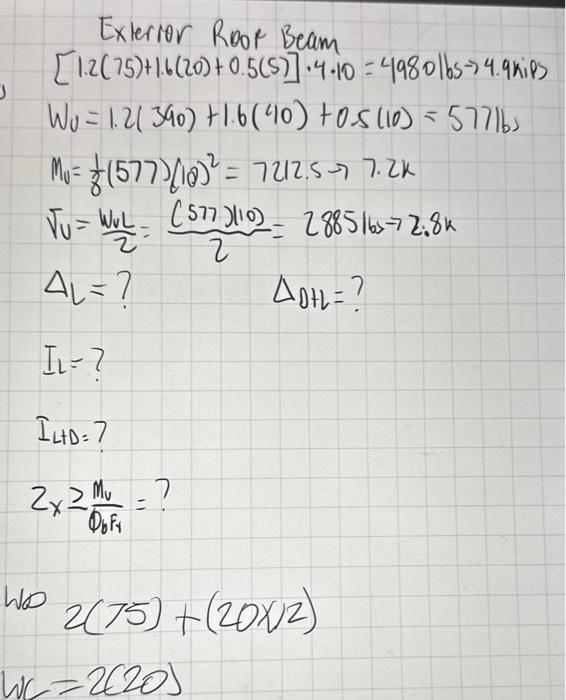 Exterior Roof Beam
[1.2(75)+1.6(20)+0.5(5)]·4·10 = 4980 lbs → 4.9 kips
Wu = 1.2(390) + 1.6(40) + 0.5(10) = 577 lbs
Mu = 1/8 (577)(10)² = 7212.5 → 7.2k
Vu = WuL/2 = (577)(10)/2 = 2885 lbs → 2.8k
ΔL = ? ΔD+L = ?
IL = ?
IL+D = ?
Zx ≥ Mu/ΦbFy = ?
WD 2(75) + (20x12)
WL = 2(20)